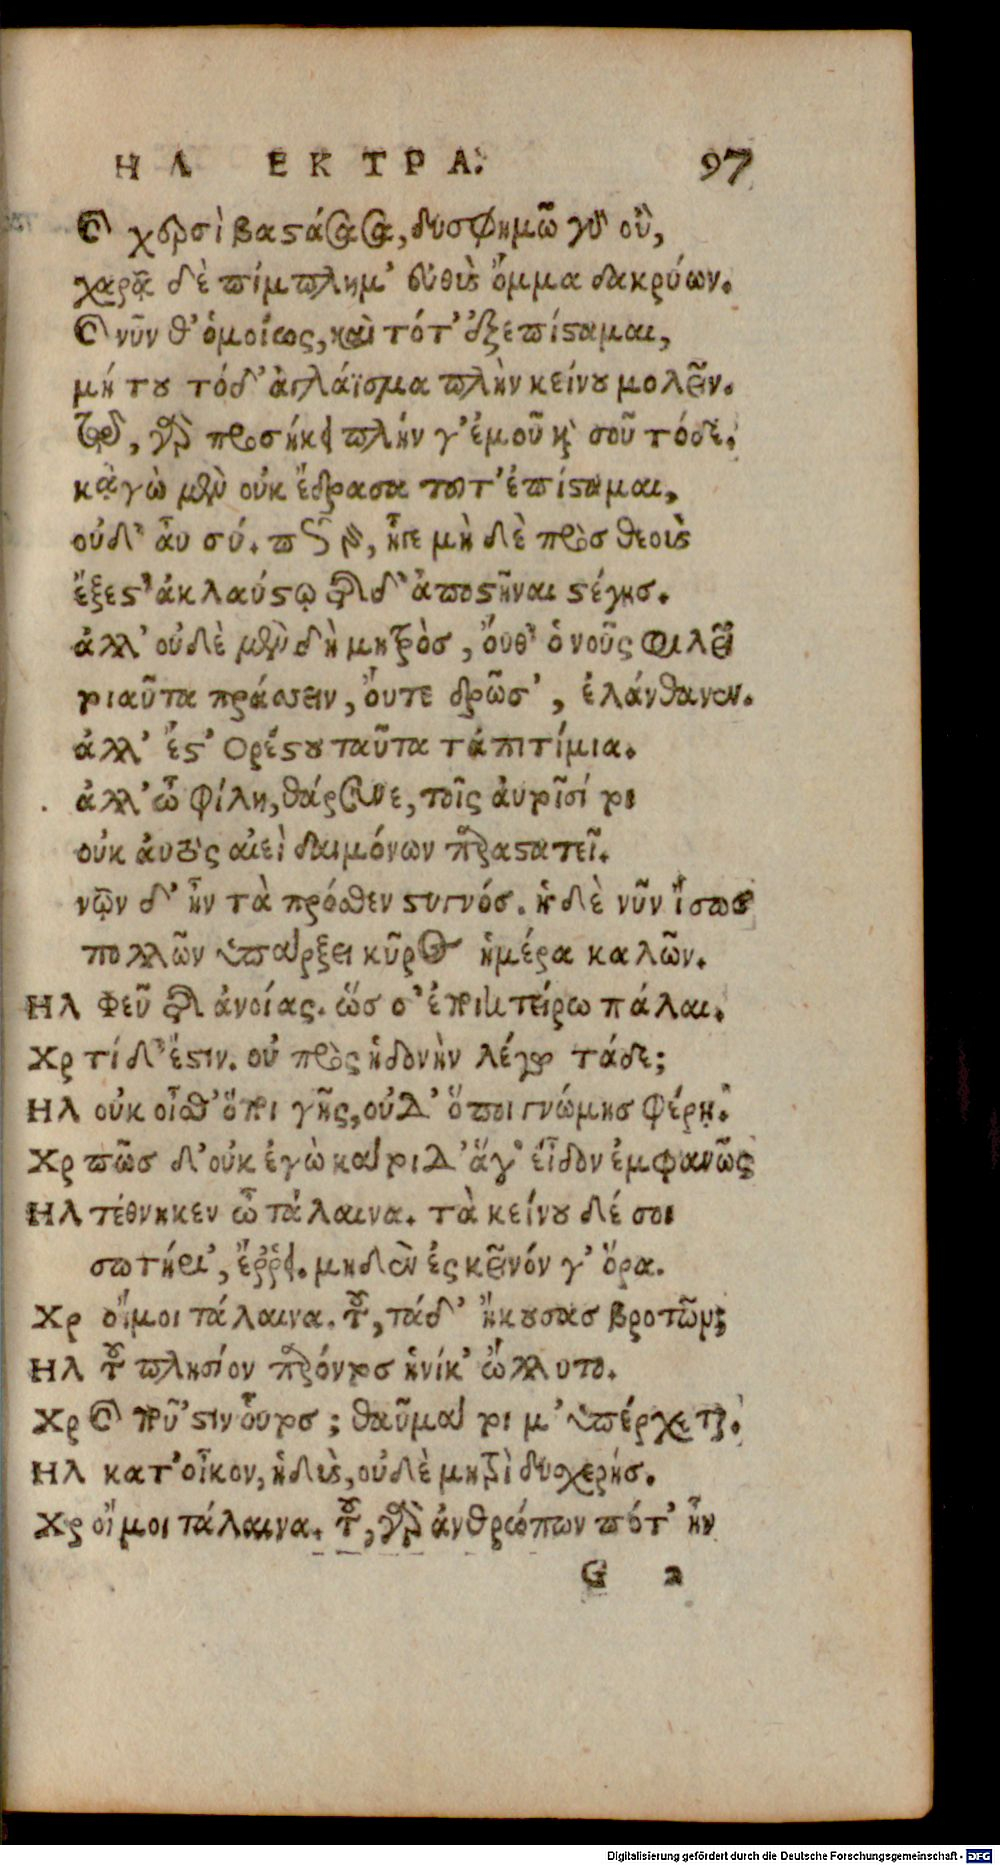 ΗΛ ΕΚΤΡΑ. 97
καὶ χερσὶ βαστάσασα, δυσφημῶ μὲν οὔ,
χαρᾷ δὲ πίμπλημ' εὐθὺς ὄμμα δακρύων.
καὶ νῦν θ' ὁμοίως, καὶ τότ' ἐξεπίσταμαι,
μή του τόδ' ἀγλάϊσμα πλὴν κείνου μολεῖν.
τῷδε, γὰρ προσήκει πλήν γ' ἐμοῦ καὶ σοῦ τόδε.
κἀγὼ μὲν οὐκ ἔδρασα τοῦτ' ἐπίσταμαι,
οὐδ' αὖ σύ. πῶς γάρ, ᾗτε μὴ δὲ πρὸς θεοὺς
ἔξεστ' ἀκλαύστῳ τῆσδ' ἀποστῆναι στέγης.
ἀλλ' οὐδὲ μὲν δὴ μητρὸς, οὔθ' ὁ νοῦς φιλεῖ
τοιαῦτα πράσσειν, οὔτε δρῶσ', ἐλάνθανεν.
ἀλλ' ἔστ' Ορέστου ταῦτα τἀπιτίμια.
ἀλλ' ὦ φίλη, θάρσυνε, τοῖς αὐτοῖσί τοι
οὐκ αὐτὸς αἰεὶ δαιμόνων παραστατεῖ.
νῷν δ' ἦν τὰ πρόσθεν στυγνός. ἡ δὲ νῦν ἴσως
πολλῶν ὑπάρξει κῦρος ἡμέρα καλῶν.
ΗΛ Φεῦ τῆς ἀνοίας. ὥς σ' ἐποικτείρω πάλαι.
Χρ τί δ' ἔστιν. οὐ πρὸς ἡδονὴν λέγω τάδε;
ΗΛ οὐκ οἶσθ' ὅποι γῆς, οὐδ' ὅποι γνώμης φέρῃ.
Χρ πῶς δ' οὐκ ἐγὼ κάτοιδ' ἅγ' εἶδον ἐμφανῶς
ΗΛ τέθνηκεν ὦ τάλαινα. τὰ κείνου δέ σοι
σωτήρι', ἔρρει. μηδὲν ἐς κεῖνόν γ' ὅρα.
Χρ οἴμοι τάλαινα. τοῦ, τάδ' ἤκουσας βροτῶν;
ΗΛ τοῦ πλησίον παρόντος ἡνίκ' ὤλλυτο.
Χρ καὶ ποῦ 'στιν οὗτος; θαῦμά τοι μ' ὑπέρχεται.
ΗΛ κατ' οἶκον, ἡδὺς, οὐδὲ μητρὶ δυσχερής.
Χρ οἴμοι τάλαινα. τοῦ, γὰρ ἀνθρώπων πότ' ἦν
G 2
Digitalisierung gefördert durch die Deutsche Forschungsgemeinschaft - DFG